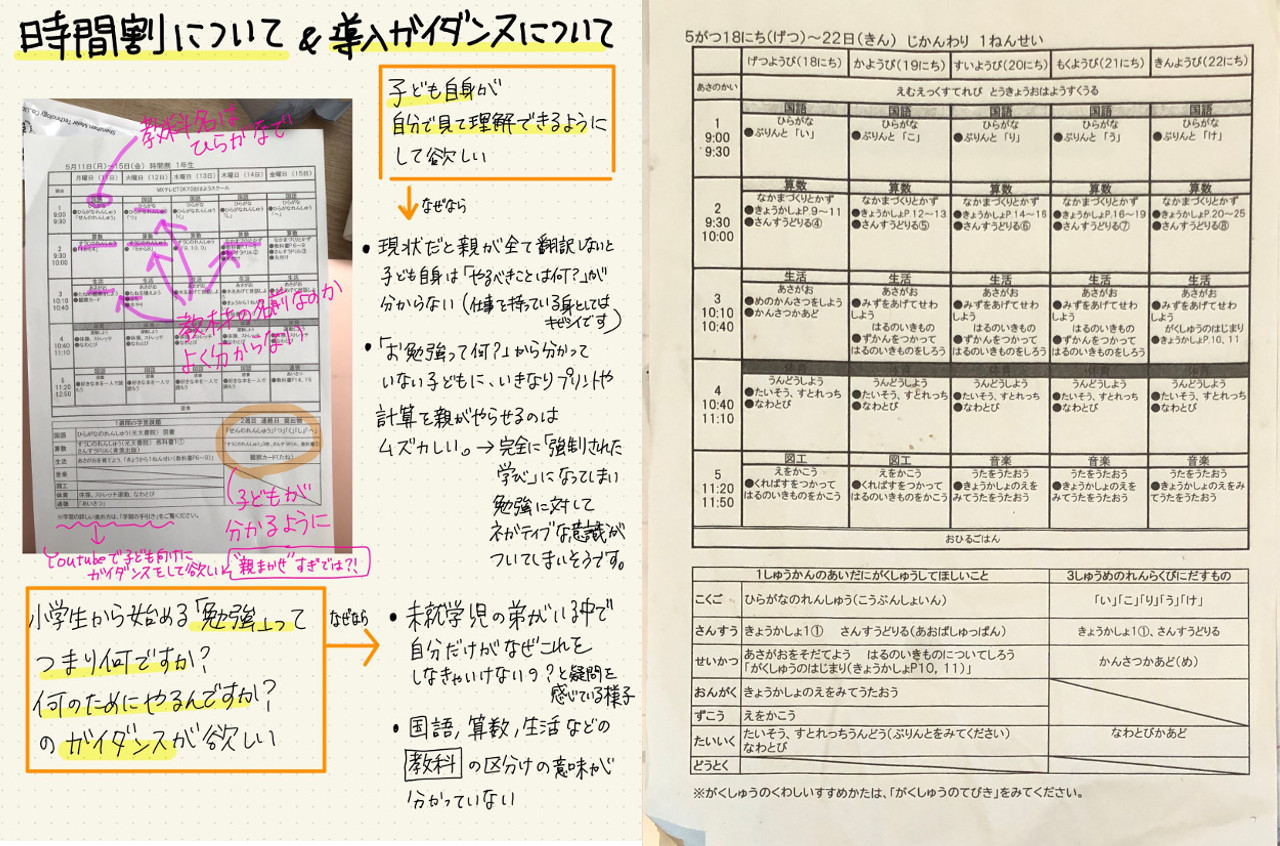 時間割について & 導入ガイダンスについて
Shenzhen Maijer Technology Co., Ltd
教科名は
ひらがなで
5月11日(月)~15日(金) 時間割 1年生
月曜日(11日) 火曜日(12日) 水曜日(13日) 木曜日(14日) 金曜日(15日)
MXテレビTOKYOおはようスクール
教材の名前なのか
よく分からない
1週間の学習課題
国語 ひらがなのれんしゅう(光文書院) 音書
生活
音楽
図工
体育 体操、ストレッチ運動、なわとび
道徳 「あいさつ」
観察カード(たね)
子どもが
分かるように
※学習の詳しい進め方は、「学習の手引き」をご覧ください。
Youtubeで子ども向けに
ガイダンスをして欲しい
"親まかせ"すぎでは?!
子ども自身が
自分で見て理解できるように
して欲しい
なぜなら
•現状だと親が全て翻訳しないと
子ども自身は「やるべきことは何?」が
分からない(仕事を持っている身としては
キビシイです)
•「お勉強って何?」から分かって
いない子どもに、いきなりプリントや
計算を親がやらせるのは
ムズカしい。→完全に「強制された
学び」になってしまい
勉強に対して
ネガティブな意識が
ついてしまいそうです。
小学生から始める「勉強」って
つまり何ですか?
何のためにやるんですか?
のガイダンスが欲しい
なぜなら
•未就学児の弟がいる中で
自分だけがなぜこれを
しなきゃいけないの?と疑問を
感じている様子
•国語,算数,生活などの
教科の区分けの意味が
分かっていない
5がつ18にち(げつ)~22日(きん) じかんわり 1ねんせい
げつようび(18にち) かようび(19にち) すいようび(20にち) もくようび(21にち) きんようび(22にち)
あさのかい えむえっくすてれび とうきょうおはようすくうる
1
9:00
9:30
国語 国語 国語 国語 国語
ひらがな ひらがな ひらがな ひらがな ひらがな
●ぷりんと「い」 ●ぷりんと「こ」 ●ぷりんと「り」 ●ぷりんと「う」 ●ぷりんと「け」
2
9:30
10:00
算数 算数 算数 算数 算数
なかまづくりとかず なかまづくりとかず なかまづくりとかず なかまづくりとかず なかまづくりとかず
●きょうかしょP.9~11 ●きょうかしょP.12~13 ●きょうかしょP.14~16 ●きょうかしょP.16~19 ●きょうかしょP.20~25
●さんすうどりる④ ●さんすうどりる⑤ ●さんすうどりる⑥ ●さんすうどりる⑦ ●さんすうどりる⑧
3
10:10
10:40
生活 生活 生活 生活 生活
あさがお あさがお あさがお あさがお あさがお
●めのかんさつをしよう ●みずをあげてせわしよう ●みずをあげてせわしよう ●みずをあげてせわしよう ●みずをあげてせわしよう
●かんさつかあど はるのいきもの はるのいきもの はるのいきもの がくしゅうのはじまり
●ずかんをつかってはるのいきものをしろう ●ずかんをつかってはるのいきものをしろう ●ずかんをつかってはるのいきものをしろう ●きょうかしょP.10, 11
4
10:40
11:10
体育 体育 体育 体育 体育
うんどうしよう うんどうしよう うんどうしよう うんどうしよう うんどうしよう
●たいそう、すとれっち ●たいそう、すとれっち ●たいそう、すとれっち ●たいそう、すとれっち ●たいそう、すとれっち
●なわとび ●なわとび ●なわとび ●なわとび ●なわとび
5
11:20
11:50
図工 図工 音楽 音楽 音楽
えをかこう えをかこう うたをうたおう うたをうたおう うたをうたおう
●くれぱすをつかってはるのいきものをかこう ●くれぱすをつかってはるのいきものをかこう ●きょうかしょのえをみてうたをうたおう ●きょうかしょのえをみてうたをうたおう ●きょうかしょのえをみてうたをうたおう
おひるごはん
1しゅうかんのあいだにがくしゅうしてほしいこと 3しゅうめのれんらくびにだすもの
こくご ひらがなのれんしゅう(こうぶんしょいん) 「い」「こ」「り」「う」「け」
さんすう きょうかしょ1① さんすうどりる(あおばしゅっぱん) きょうかしょ1①、さんすうどりる
せいかつ あさがおをそだてよう はるのいきものについてしろう
「がくしゅうのはじまり(きょうかしょP10, 11)」 かんさつかあど(め)
おんがく きょうかしょのえをみてうたおう
ずこう えをかこう
たいいく たいそう、すとれっちうんどう(ぷりんとをみてください)
なわとび なわとびかあど
どうとく
※がくしゅうのくわしいすすめかたは、「がくしゅうのてびき」をみてください。